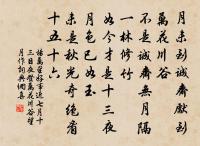 月未到誠齋到
萬花川谷
不是誠齋無月隔
一林修竹
如今才是十三夜
月色已如玉
未是秋光奇絕看
十五十六
楊萬里好事近七月十
三日夜登萬花川谷望
月作詞典網